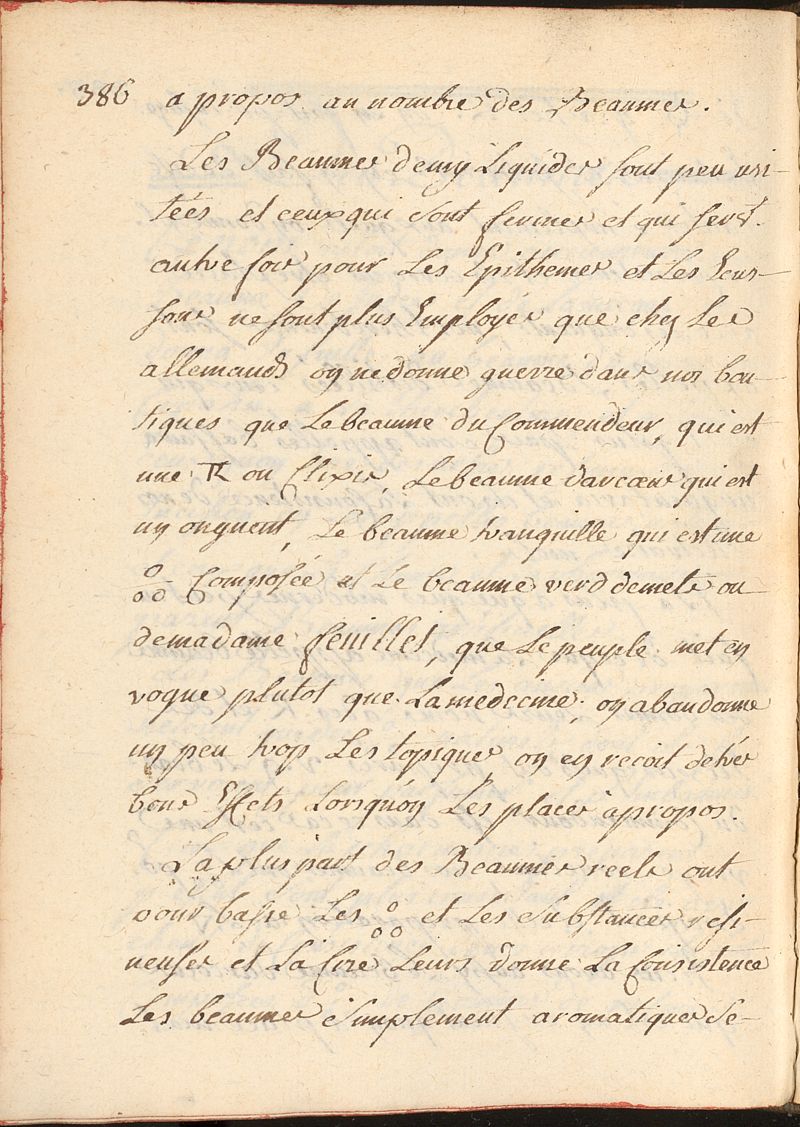 386 a propos au nombre des Beaumes.
Les Beaumes demy Liquides sont peu usi-
tées et ceux qui sont fermes et qui servt.
autre fois pour Les Epithemes et Les Ecus-
sons ne sont plus Employés que chez Les
allemands on ne donne guerre dans nos bou-
tiques que Le beaume du Commendeur, qui est
une TR ou Elixir, Le beaume darcoeus qui est
un onguent, Le beaume tranquille qui est une
o/oo Composée et Le beaume verd de mets ou
de madame feuillet, que Le peuple met en
vogue plutot que La medecine; on abandonne
un peu trop Les topiques on en recoit de trés
bons Effets Lorsqu'on Les places àpropos.
La plus part des Beaumes reels ont
pour basse Les o/oo et Les substances resi-
neuses et La Cire Leurs donne La Consistence
Les beaumes simplement aromatiques se-